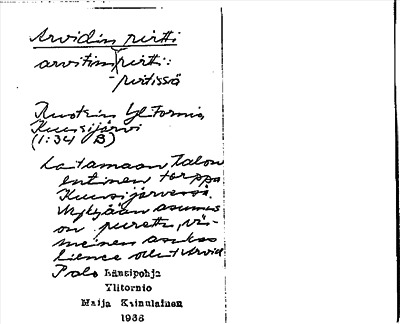 Arvidin pirtti
arvitim pirtti:
-pirtissä
Ruotsin Ylitornio,
Kuusijärvi
(1:34 B)
Latamaan talon
entinen torppa
Kuusijärvessä.
Nykyään asumus
on purettu, vii-
meinen asukas
lienee ollut Arvid
Palo Länsipohja
Ylitornio
Maija Kainulainen
1966